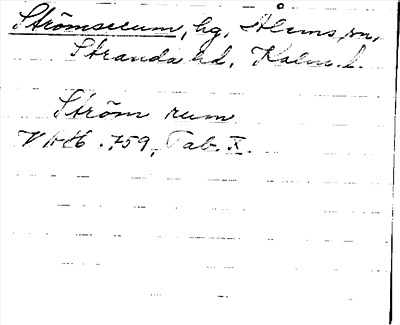 Strömserum, hg, Ålems sn,
Stranda hd, Kalm. l.
Ström rum
VHAH 6. 759, Tab. X.